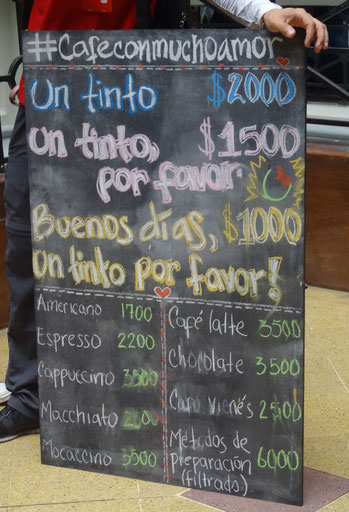 #Cafeconmuchoamor
Un tinto $2000
Un tinto, $1500
por favor.
Buenos días, $1000
Un tinto por favor!
Americano 1700
Espresso 2200
Cappuccino 3500
Macchiato
Mocaccino 3500
Café latte 3500
Chocolate 3500
Café vienés 2500
Métodos de
preparación 6000
(filtrado)